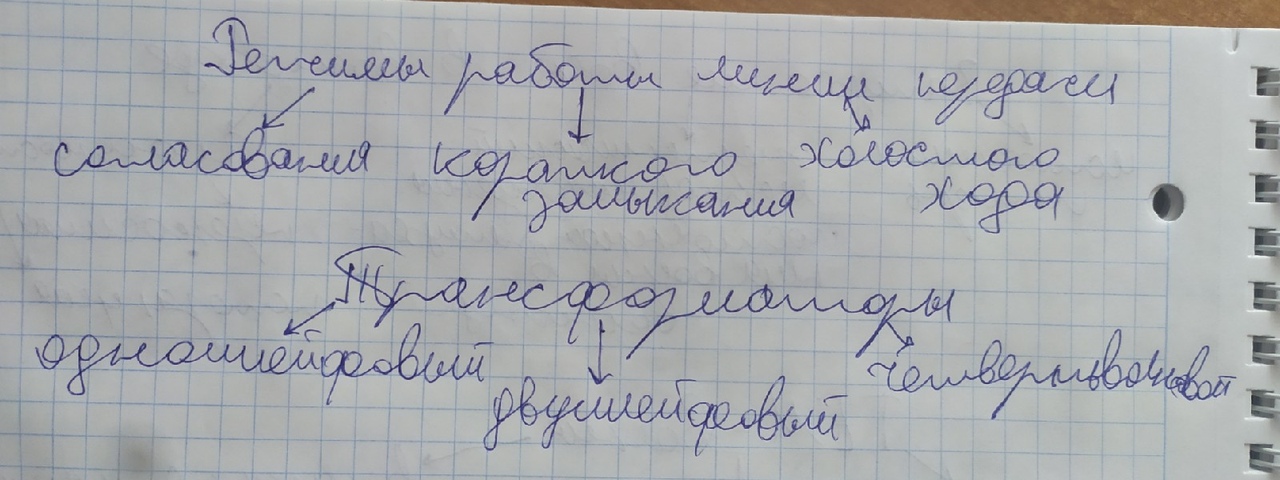 Режимы работы линии передачи
согласования короткого холостого
замыкания хода
Трансформаторы
одношлейфовый
двушлейфовый
четвертьволновой